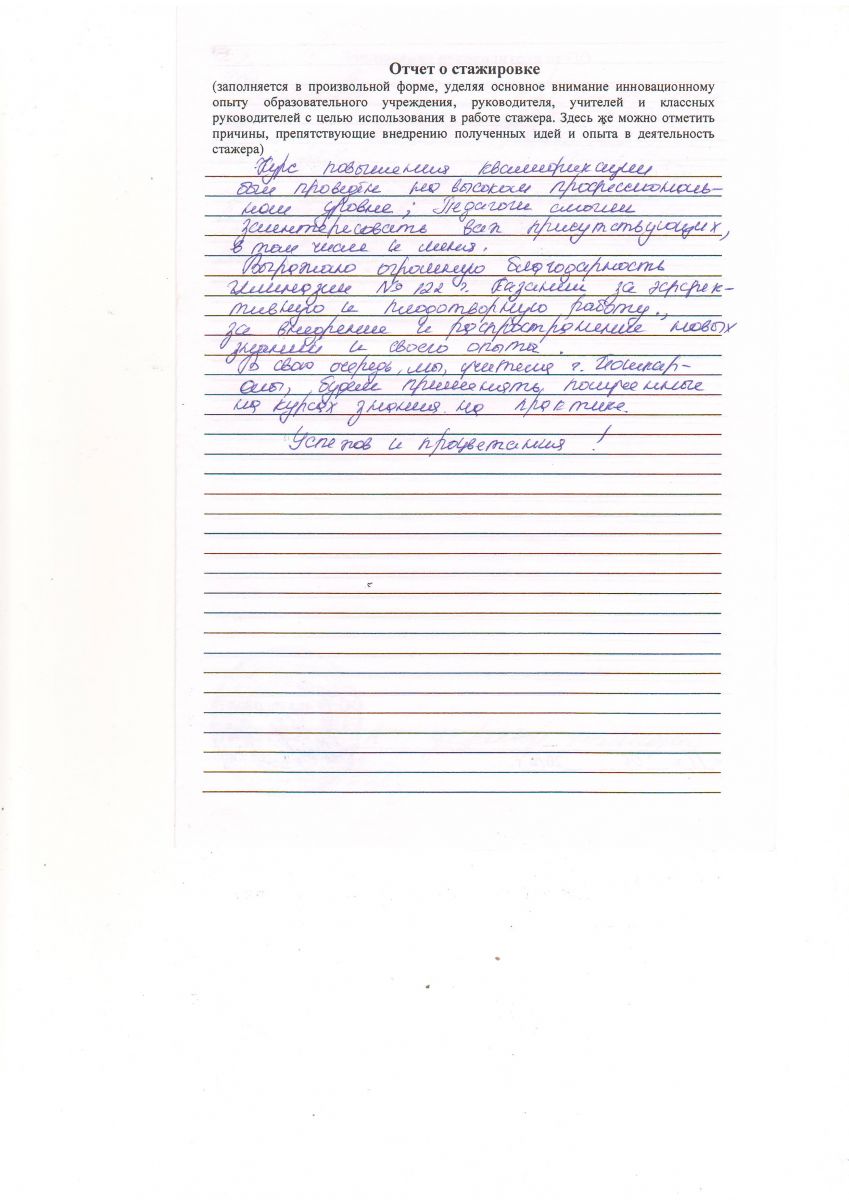 Отчет о стажировке
(заполняется в произвольной форме, уделяя основное внимание инновационному
опыту образовательного учреждения, руководителя, учителей и классных
руководителей с целью использования в работе стажера. Здесь же можно отметить
причины, препятствующие внедрению полученных идей и опыта в деятельность
стажера)
Курс повышения квалификации
был проведён на высоком профессиональ-
ном уровне; Педагоги смогли
заинтересовать всех присутствующих,
в том числе и меня.
Выражаю огромную благодарность
гимназии № 122 г. Казани за эффек-
тивную и плодотворную работу.,
за внедрение и распространение новых
знаний и своего опыта.
В свою очередь, мы, учителя г. Йошкар-
олы, будем применять полученные
на курсах знания на практике.
Успехов и процветания!